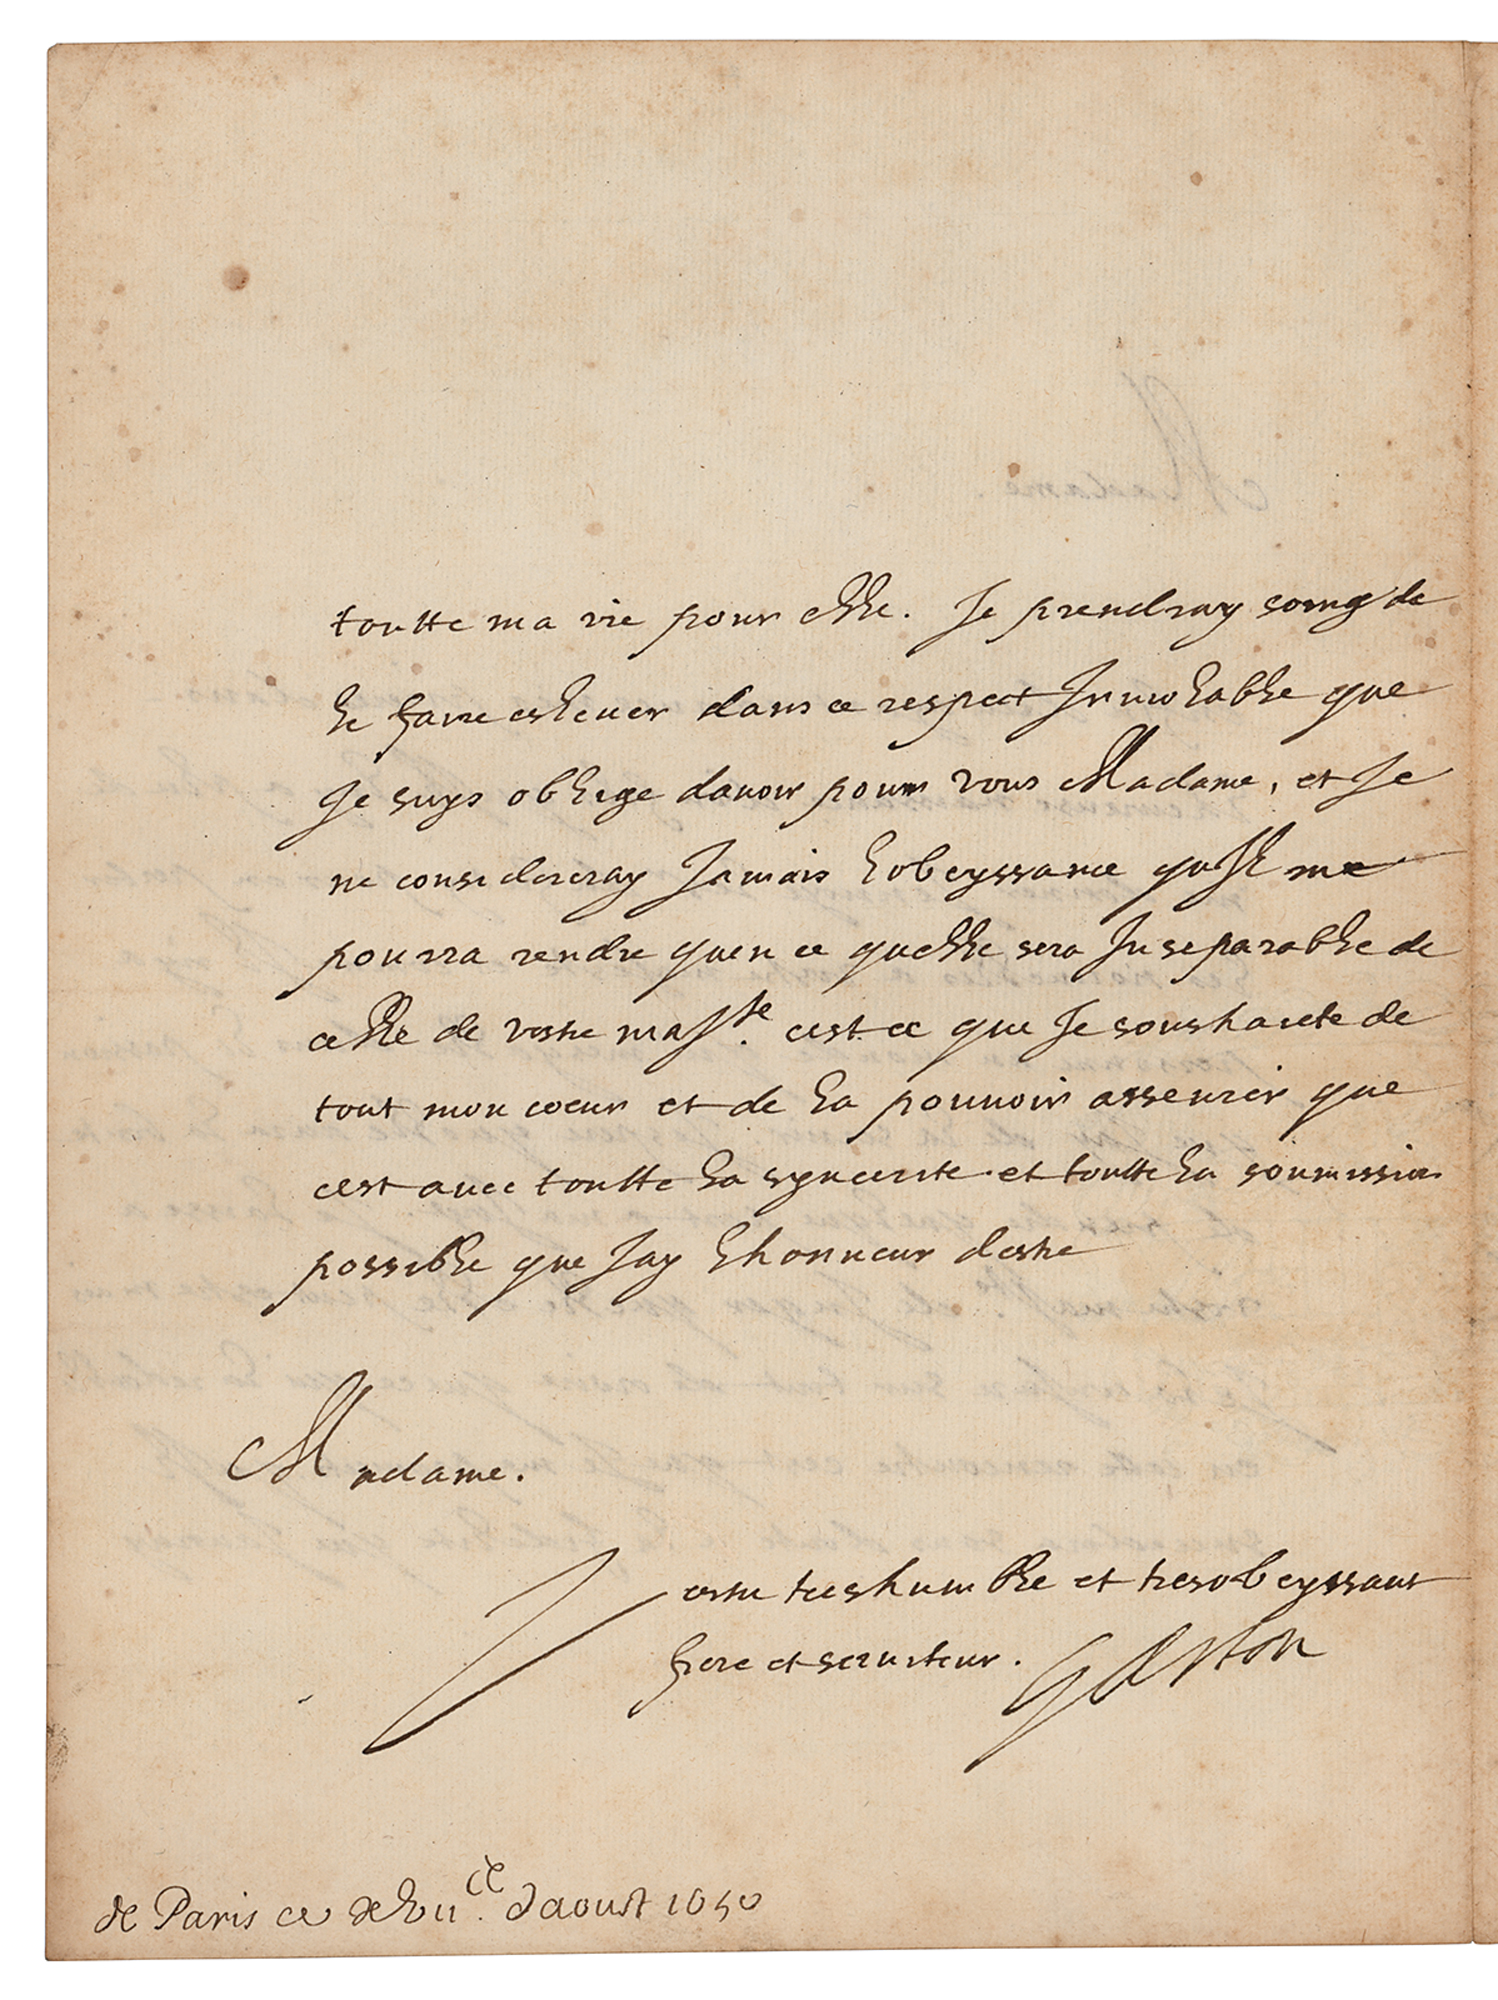 toutte ma vie pour elle. Je prendray soing de
le faire eslever dans ce respect Inviolable que
Je suys oblige davoir pour vous Madame, et Je
ne considereray Jamais lobeyssance quIl me
pourra rendre quen ce quelle sera Inseparable de
celle de vostre maJte. cest ce que Je soushaitte de
tout mon coeur et de la pouvoir asseurer que
cest avec toutte la syncerite et toutte la soumission
possible que Jay lhonneur destre
Madame.
Vostre tres humble et tres obeyssant
frere et serviteur. Gaston
de Paris ce daoust 1650